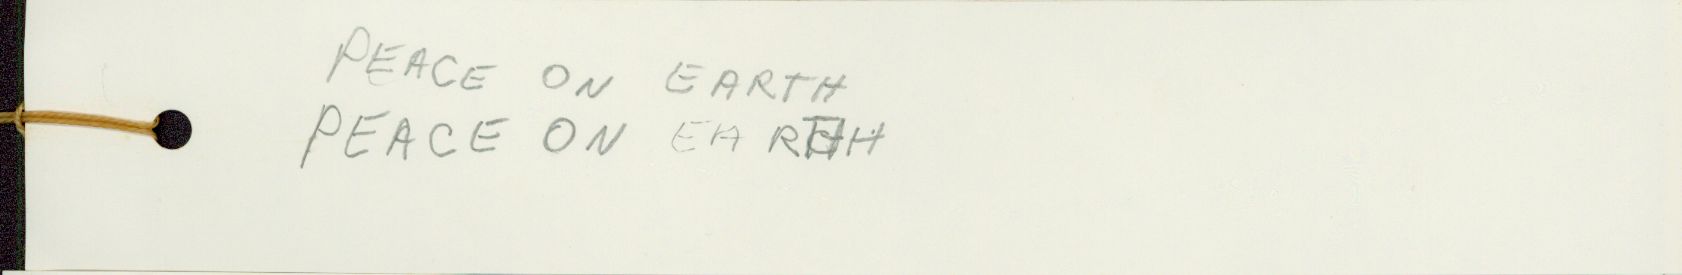 PEACE ON EARTH
PEACE ON EARTH